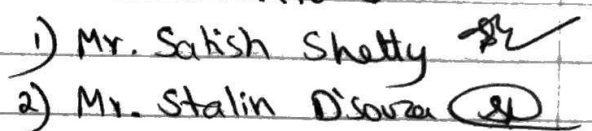 1) Mr. Satish Shetty
2) Mr. Stalin D'souza